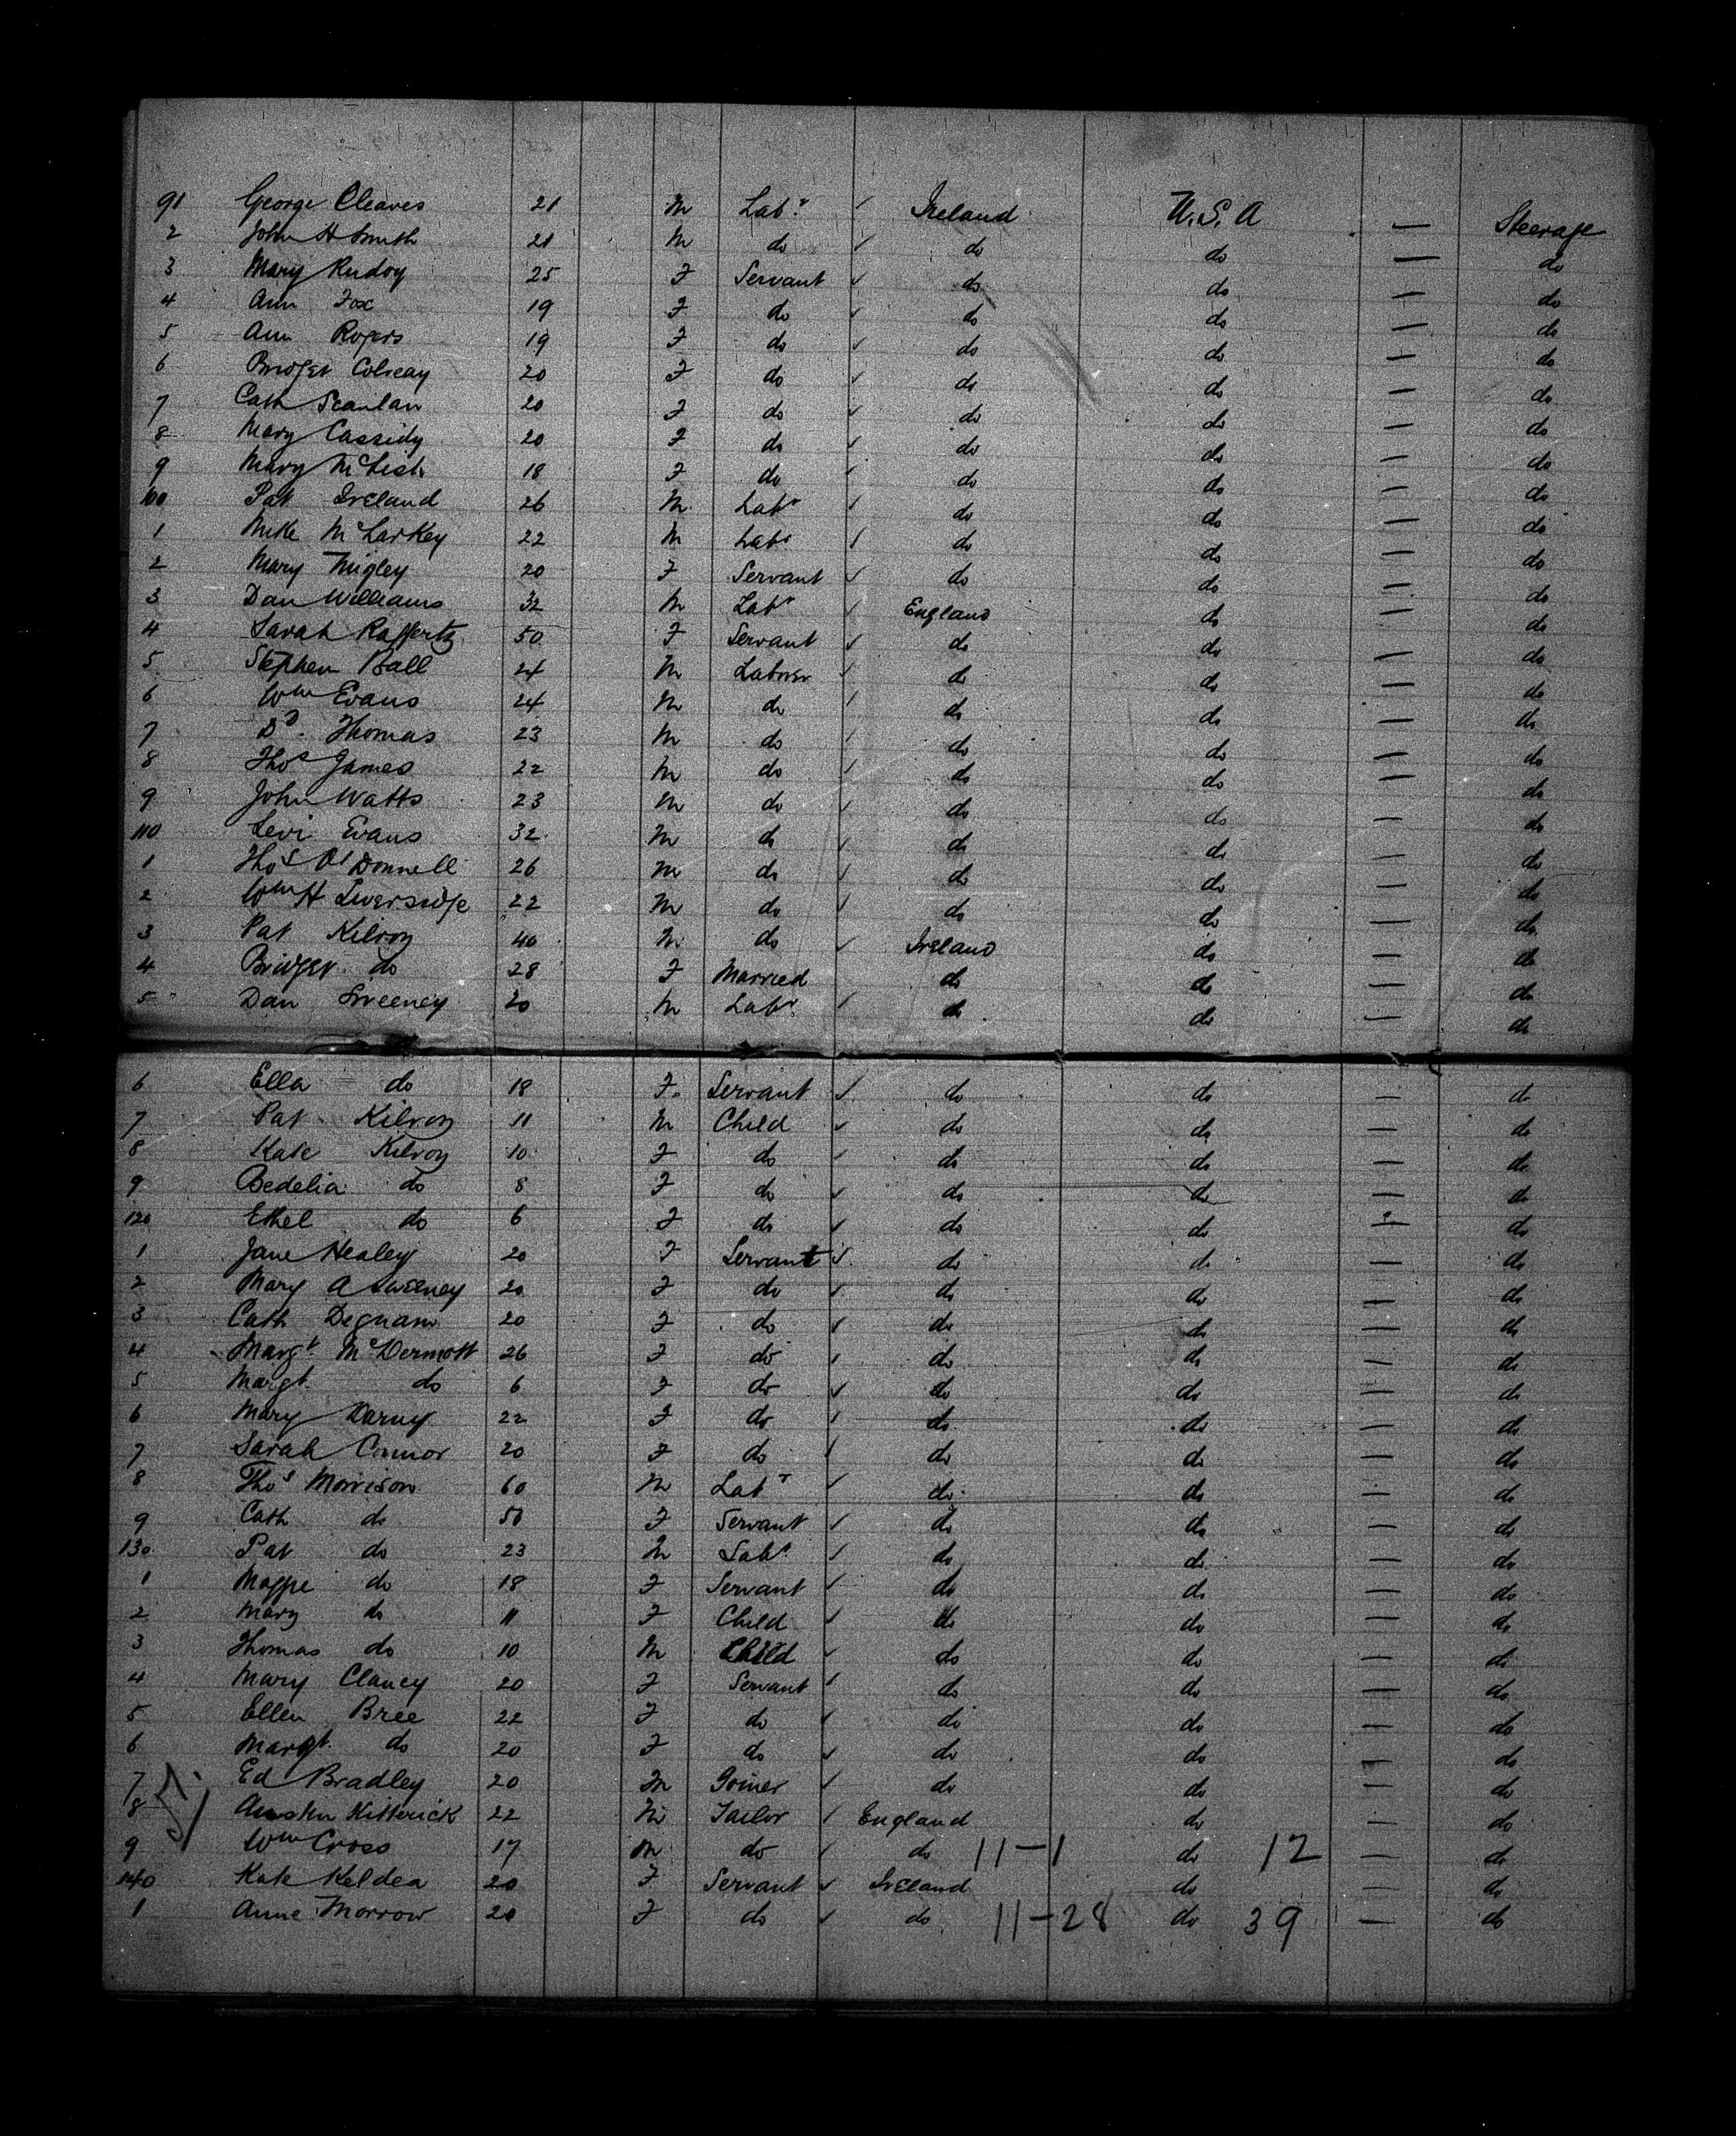 91 George Cleaves 21 M Labr ✓ Ireland U.S.A — Steerage
2 John H Smith 21 M do ✓ do do — do
3 Mary Rudoy 25 F Servant ✓ do do — do
4 Ann Fox 19 F do ✓ do do — do
5 Ann Rogers 19 F do ✓ do do — do
6 Bridget Colreay 20 F do ✓ do do — do
7 Cath Scanlan 20 F do ✓ do do — do
8 Mary Cassidy 20 F do ✓ do do — do
9 Mary 18 F do ✓ do do — do
100 Pat Ireland 26 M Labr ✓ do do — do
1 Mike McLarkey 22 M Labr ✓ do do — do
2 Mary 20 F Servant ✓ do do — do
3 Dan Williams 32 M Labr ✓ England do — do
4 Sarah Rafferty 50 F Servant ✓ do do — do
5 Stephen Ball 24 M Laborer ✓ do do — do
6 Wm Evans 24 M do ✓ do do — do
7 Dd. Thomas 23 M do ✓ do do — do
8 Thos James 22 M do ✓ do do — do
9 John Watts 23 M do ✓ do do — do
110 Levi Evans 32 M do ✓ do do — do
1 Thos O'Donnell 26 M do ✓ do do — do
2 Wm H Liversidge 22 M do ✓ do do — do
3 Pat Kilroy 40 M do ✓ Ireland do — do
4 Bridget do 28 F Married do do — do
5 Dan Sweeney 20 M Labr ✓ do do — do
6 Ella do 18 F Servant ✓ do do — do
7 Pat Kilroy 11 M Child ✓ do do — do
8 Kate Kilroy 10 F do ✓ do do — do
9 Bedelia do 8 F do ✓ do do — do
120 Ethel do 6 F do ✓ do do — do
1 Jane Healey 20 F Servant ✓ do do — do
2 Mary A Sweeney 20 F do ✓ do do — do
3 Cath Degnam 20 F do ✓ do do — do
4 Margt. McDermott 26 F do ✓ do do — do
5 Margt. do 6 F do ✓ do do — do
6 Mary 22 F do ✓ do do — do
7 Sarah Connor 20 F do ✓ do do — do
8 Thos Morrison 60 M Labr ✓ do do — do
9 Cath do 50 F Servant ✓ do do — do
130 Pat do 23 M Labr ✓ do do — do
1 Maggie do 18 F Servant ✓ do do — do
2 Mary do 11 F Child ✓ do do — do
3 Thomas do 10 M Child ✓ do do — do
4 Mary Clancy 20 F Servant ✓ do do — do
5 Ellen Bree 22 F do ✓ do do — do
6 Margt. do 20 F do ✓ do do — do
7 Ed Bradley 20 M Joiner ✓ do do — do
8 Austin Kitterick 22 M Tailor ✓ England do — do
9 Wm Cross 17 M do ✓ do 11-1 do 12 — do
140 Kate Keldea 20 F Servant ✓ Ireland do — do
1 Anne Morrow 20 F do ✓ do 11-28 do 39 — do